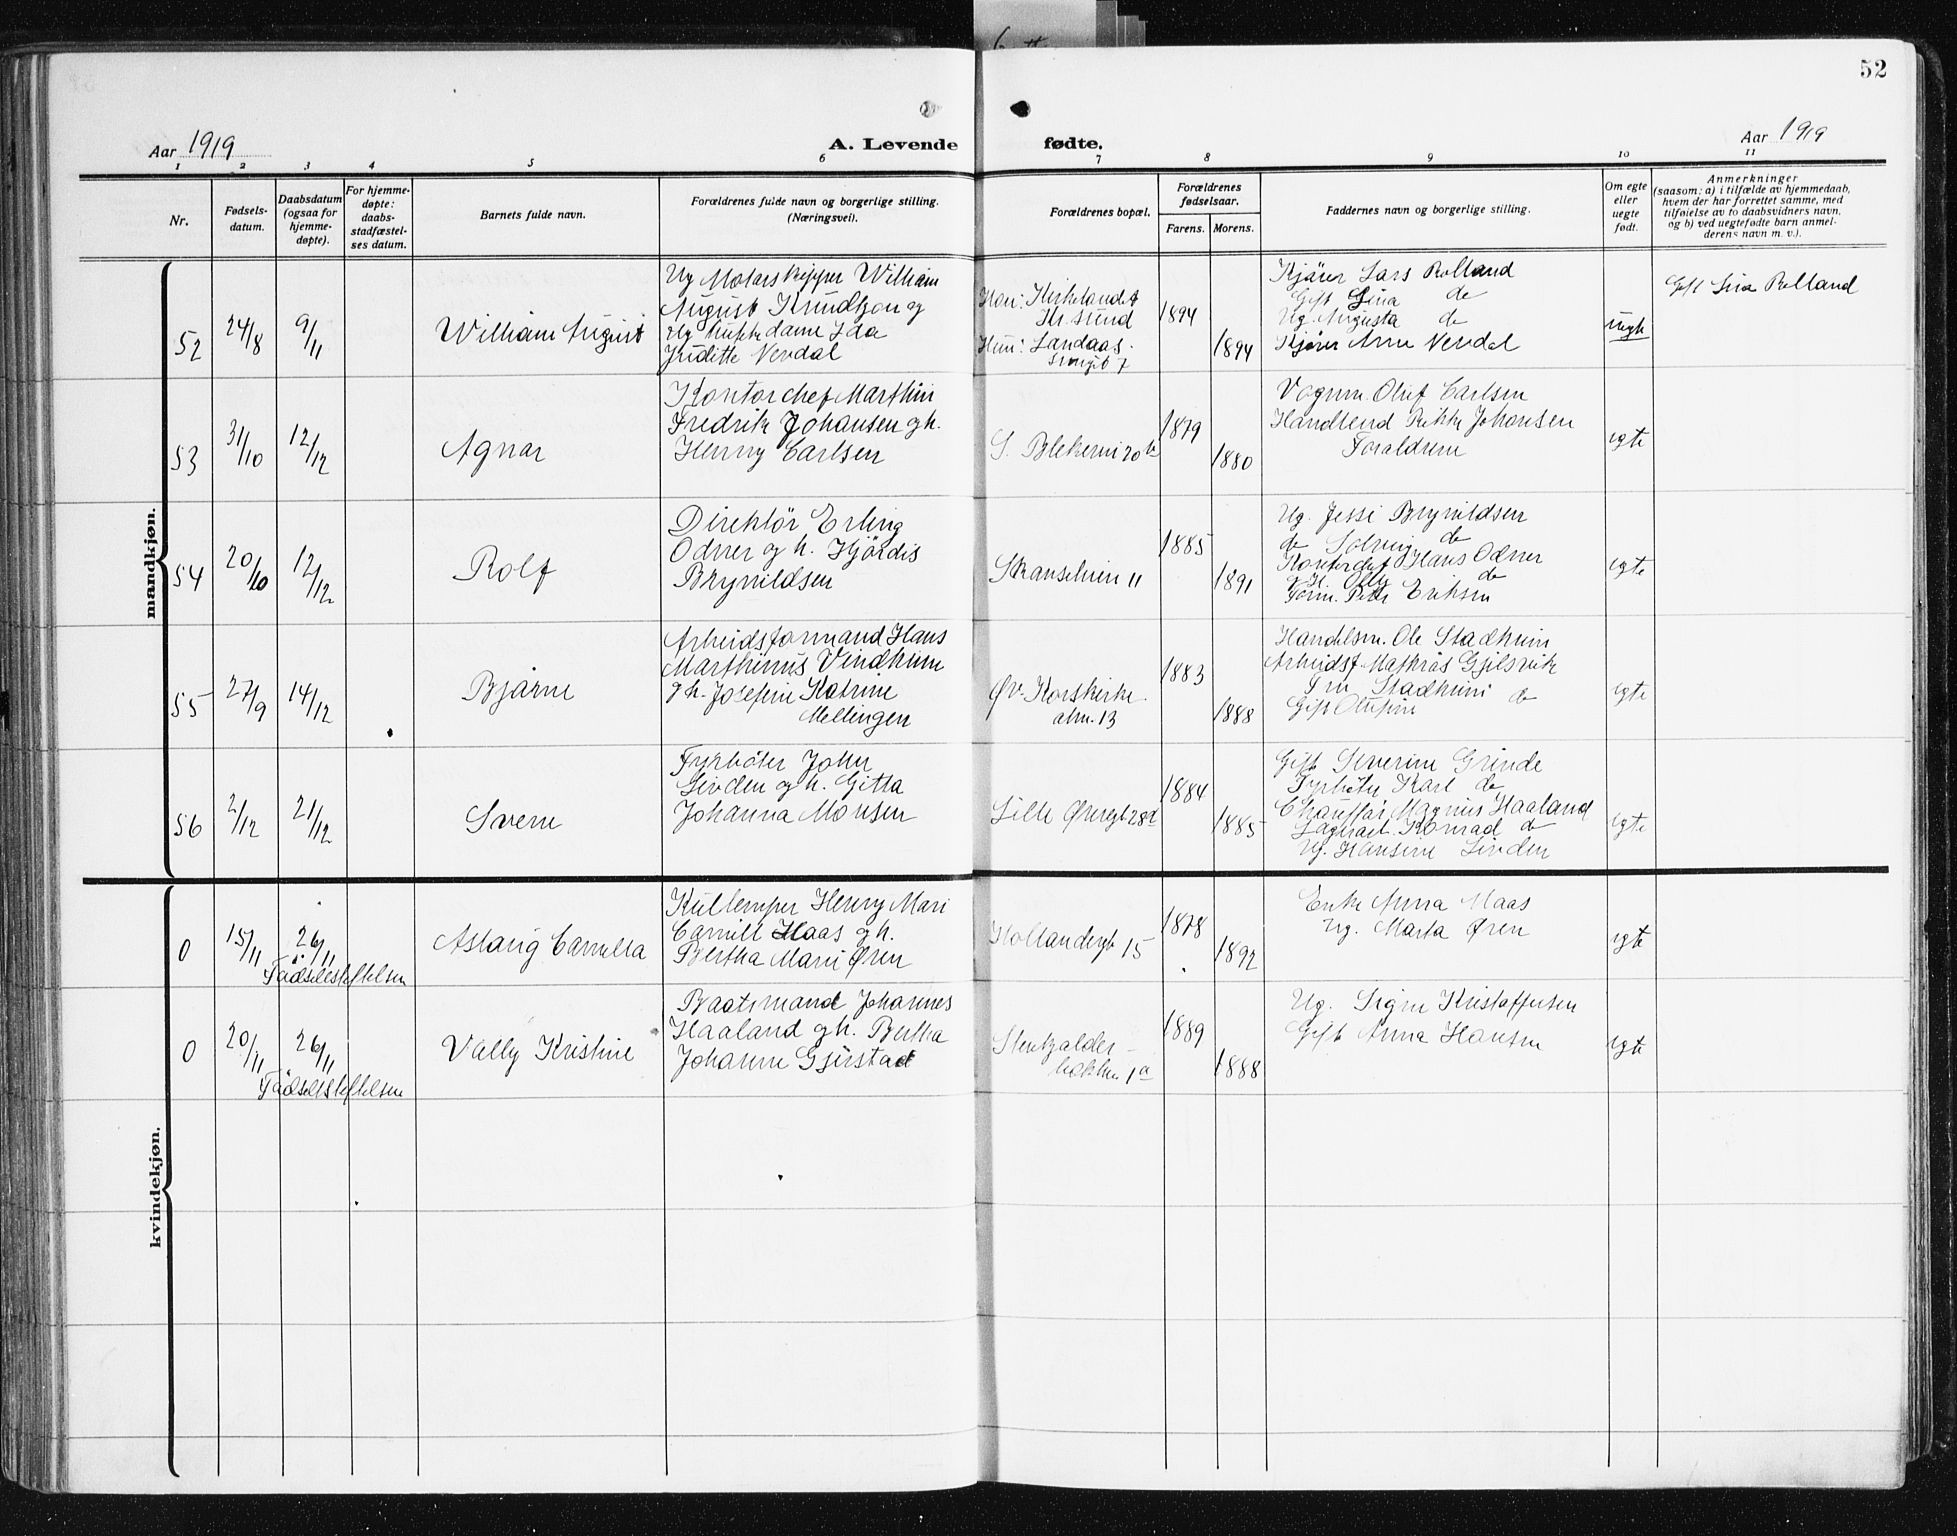 52
Aar 1919
A. Levende fødte.
Aar 1919
1 2 3 4 5 6 7 8 9 10 11
Nr.
Fødsels-
datum.
Daabsdatum
(ogsaa for
hjemme-
døpte).
For hjemme-
døpte:
daabs-
stadfæstel-
ses datum.
Barnets fulde navn.
Forældrenes fulde navn og borgerlige stilling.
(Næringsvei).
Forældrenes bopæl.
Forældrenes
fødselsaar.
Farens. Morens.
Faddernes navn og borgerlige stilling.
Om egte
eller
uegte
født.
Anmerkninger
(saasom: a) i tilfælde av hjemmedaab,
hvem der har forrettet samme, med
tilføielse av to daabsvidners navn,
og b) ved uegtefødte barn anmel-
derens navn m. v.).
mandkjøn.
52
24/8
9/11
William August
Ug Motorskipper William
August Knudtzon og
Ug
Juditte Nerdal
Han: Kirkelandet
Kr.sund
Hun: Landaas
1894
1894
Kjører Lars Rolland
Gift Lina do
Ug. Augusta do
Kjører Arne Nerdal
uegte
Gift Lina Rolland
53
31/10
12/12
Agnar
Kontorchef Marthin
Fredrik Johansen og h.
Henny Carlsen
S. Blekevei 20 b
1879
1880
Vognm. Oluf Carlsen
Handlend Rikke Johansen
Forældrene
egte
54
20/10
12/12
Rolf
Direktör Erling
Odner og h. Hjördis
Brynildsen
Skanselien 11
1885
1891
Ug. Jessi Brynildsen
do Solveig do
Kontorchef Hans Odner
g. H. Olly do
Form. Peder Eriksen
egte
55
27/9
14/12
Bjarne
Arbeidsformand Hans
Marthinus Vindheim
og h. Josefine Katrine
Mellingen
Øv. Korskirke
alm. 13
1883
1888
Handelsm. Ole Stadheim
Arbeidsf. Mathias Gjelsvik
Fru Stadheim
Gift Olufine do
egte
56
2/12
21/12
Sverre
Fyrböter John
Linden og h. Gitta
Johanna Monsen
Lille Øvregt 28d
1884
1885
Gift Severine Grinde
Fyrböter Karl do
Chauffør Magnus Haaland
Lagerarb. Konrad do
Ug. Hansine Linden
egte
kvindekjøn.
0
15/11
26/11
Fødselsstiftelsen
Astarig Camilla
Kullemper Henry Mari
Camill Haas og h.
Bertha Marie Øren
Hollendergt 15
1878
1892
Enke Anna Maas
Ug. Marta Øren
egte
0
20/11
26/11
Fødselsstiftelsen
Vally Kristine
Baatsmand Johannes
Haaland og h. Bertha
Johanne Gjerstad
Stenkjelder-
bakken 1a
1889
1888
Ug. Signe Kristoffersen
Gift Anna Hansen
egte